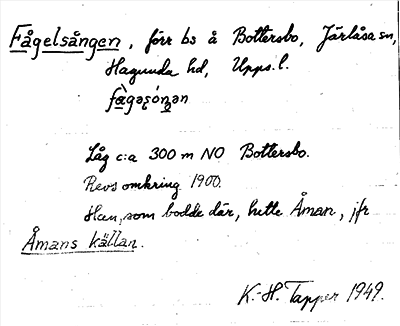 Fågelsången, förr bs å Bottersbo, Järlåsa sn,
Hagunda hd, Upps. l.
fàgəsóŋən
Låg c:a 300 m NO Bottersbo.
Revs omkring 1900.
Han, som bodde där, hette Åman, jfr
Åmans källan.
K.-H. Tapper 1949.